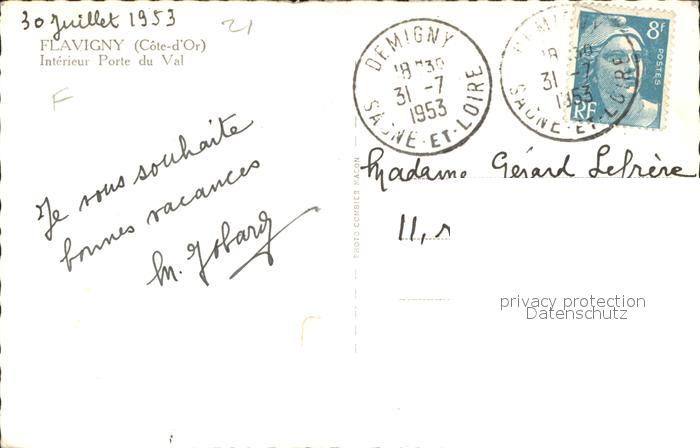 30 Juillet 1953
21
FLAVIGNY (Côte-d'Or)
Intérieur Porte du Val
F
Je vous souhaite
bonnes vacances
M. Jobard
PHOTO COMBIER MACON
DEMIGNY
18 H 30
31 -7
1953
SAONE-ET-LOIRE
DEMIGNY
18 H 30
31 -7
1953
SAONE-ET-LOIRE
8F
POSTES
RF
Madame Gérard Lefrère
11, r
privacy protection
Datenschutz